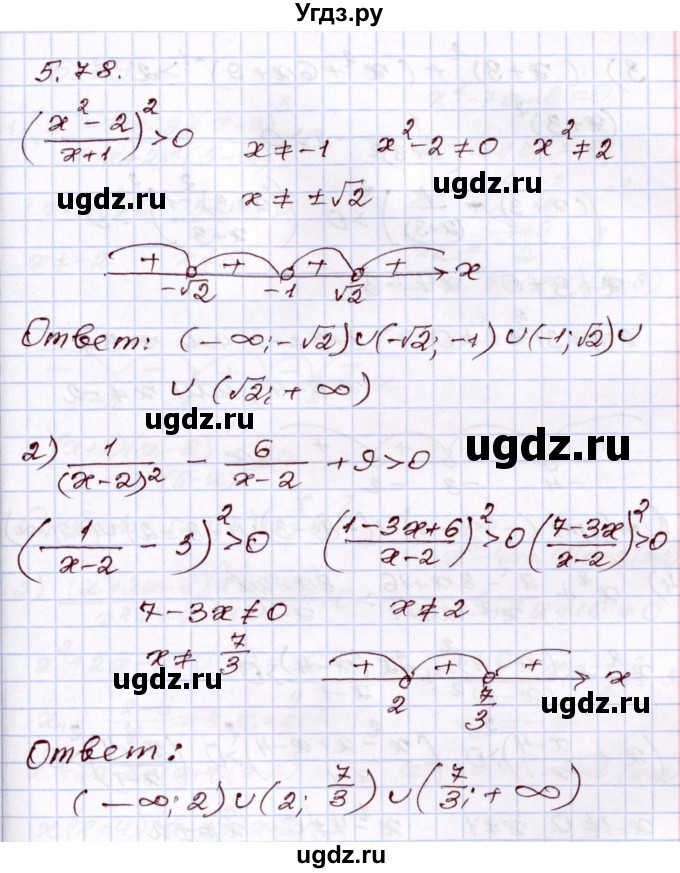 Угдз.ру
5.78.
((x²-2)/(x+1))²>0 x≠-1 x²-2≠0 x²≠2
ugdz.ru x≠±√2 ugdz.ru
+ + + + x
-√2 -1 √2
ugdz.ru
Ответ: (-∞;-√2)∪(-√2;-1)∪(-1;√2)∪
∪(√2;+∞)
ugdz.ru
2) 1/(x-2)² - 6/(x-2) +9>0 ugdz.ru
(1/(x-2) - 3)²>0 ((1-3x+6)/(x-2))²>0 ((7-3x)/(x-2))²>0
7-3x≠0 x≠2
x≠7/3
+ + + x
ugdz.ru 2 7/3 ugdz.ru
Ответ:
(-∞;2)∪(2;7/3)∪(7/3;+∞)
ugdz.ru